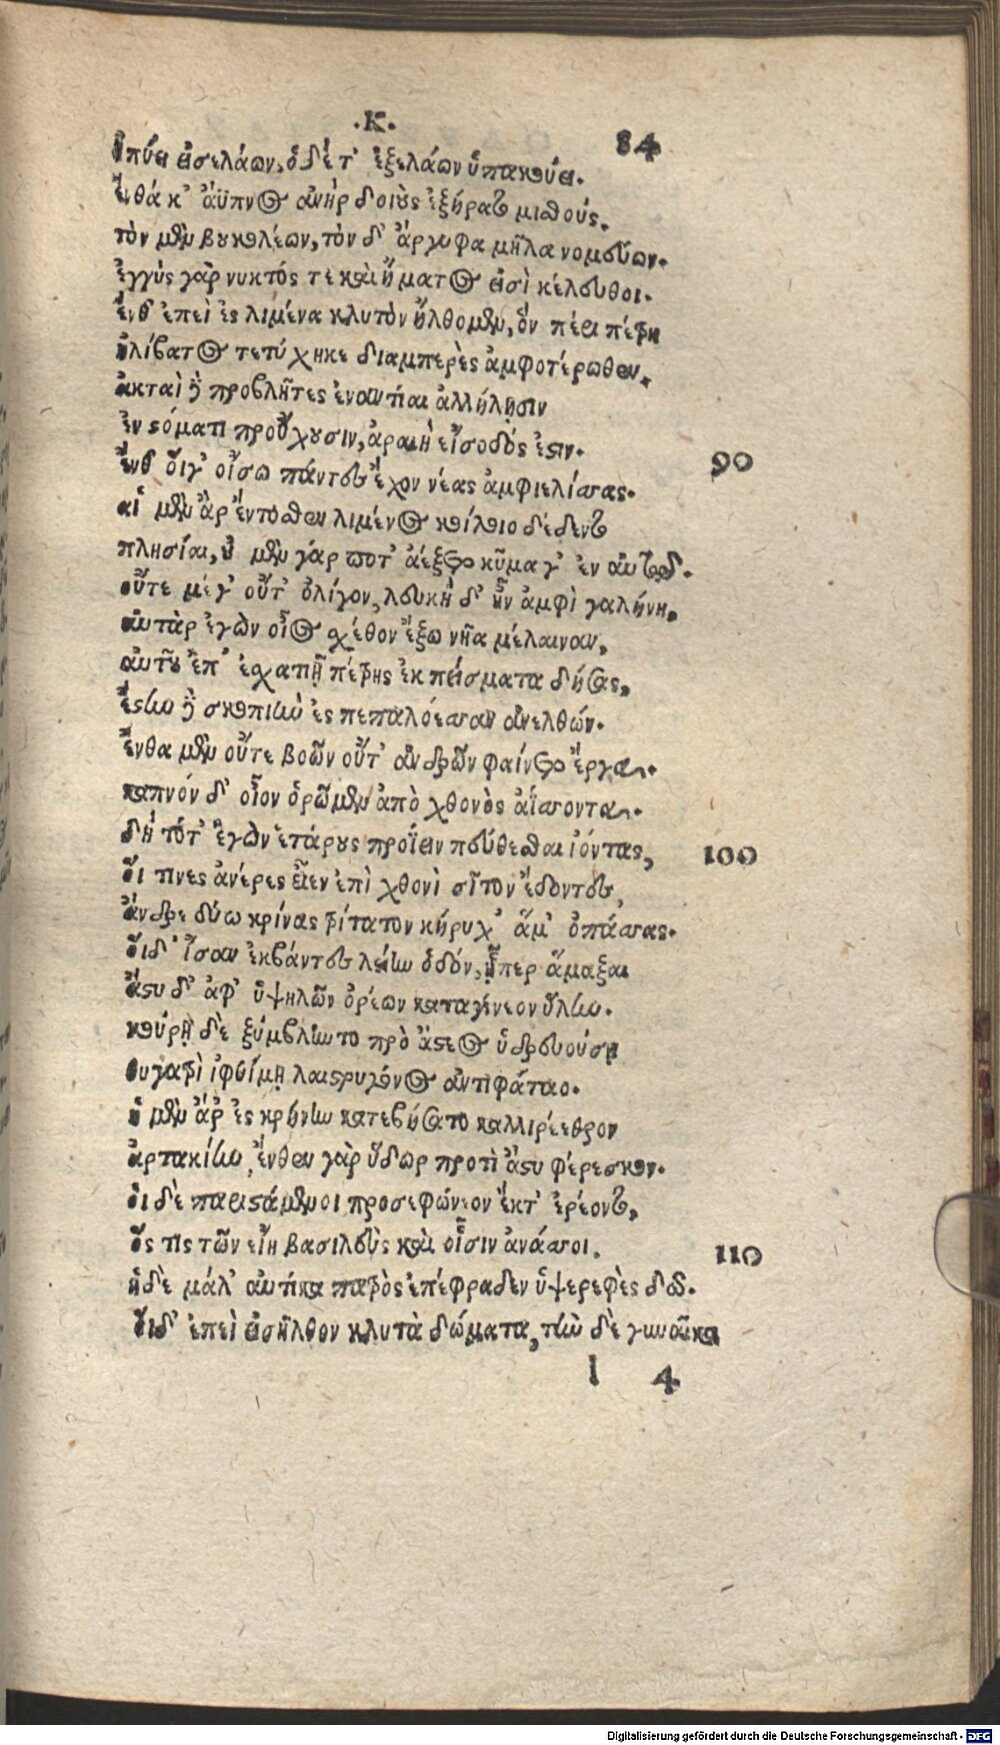 .Κ.
84
ἠπύει εἰσελάων, ὁ δέ τ' ἐξελάων ὑπακούει.
ἔνθά κ' ἄϋπνος ἀνὴρ δοιοὺς ἐξήρατο μισθούς,
τὸν μὲν βουκολέων, τὸν δ' ἄργυφα μῆλα νομεύων.
ἐγγὺς γὰρ νυκτός τε καὶ ἤματος εἰσὶ κέλευθοι.
ἔνθ' ἐπεὶ ἐς λιμένα κλυτὸν ἤλθομεν, ὃν πέρι πέτρη
ἠλίβατος τετύχηκε διαμπερὲς ἀμφοτέρωθεν,
ἀκταὶ δὲ προβλῆτες ἐναντίαι ἀλλήλῃσιν
ἐν στόματι προὔχουσιν, ἀραιὴ εἴσοδός ἐστιν.
90
ἔνθ' οἵγ' εἴσω πάντες ἔχον νέας ἀμφιελίσσας.
αἱ μὲν ἄρ ἔντοσθεν λιμένος κοίλοιο δέδεντο
πλησίαι, οὐ μὲν γάρ ποτ' ἀέξετο κῦμα γ' ἐν αὐτῷ.
οὔτε μέγ' οὔτ' ὀλίγον, λευκὴ δ' ἦν ἀμφὶ γαλήνη,
αὐτὰρ ἐγὼν οἶος σχέθον ἔξω νῆα μέλαιναν,
αὐτοῦ ἐπ' ἐσχατιῇ πέτρης ἐκ πείσματα δήσας,
ἔστην δὲ σκοπιὴν ἐς παιπαλόεσσαν ἀνελθών.
ἔνθα μὲν οὔτε βοῶν οὔτ' ἀνδρῶν φαίνετο ἔργα.
καπνόν δ' οἶον ὁρῶμεν ἀπὸ χθονὸς ἀΐσσοντα.
δὴ τότ' ἐγὼν ἑτάρους προΐειν πεύθεσθαι ἰόντας,
100
οἵ τινες ἀνέρες εἶεν ἐπὶ χθονὶ σῖτον ἔδοντες,
ἄνδρε δύω κρίνας τρίτατον κήρυχ' ἅμ' ὀπάσσας.
οἱ δ' ἴσαν ἐκβάντες λείην ὁδόν, ᾗπερ ἅμαξαι
ἄστυ δ' ἀφ' ὑψηλῶν ὀρέων καταγίνεον ὕλην.
κούρῃ δὲ ξύμβληντο πρὸ ἄστεος ὑδρευούσῃ
θυγατρὶ ἰφθίμῃ λαιστρυγόνος ἀντιφάταο.
ἡ μὲν ἄρ ἐς κρήνην κατεβήσατο καλλιρέεθρον
ἀρτακίην, ἔνθεν γὰρ ὕδωρ προτὶ ἄστυ φέρεσκον.
οἱ δὲ παριστάμενοι προσεφώνεον ἔκ τ' ἐρέοντο,
ὅς τις τῶν εἴη βασιλεὺς καὶ οἷσιν ἀνάσσοι.
110
ἡ δὲ μάλ' αὐτίκα πατρὸς ἐπέφραδεν ὑψερεφὲς δῶ.
οἱ δ' ἐπεὶ εἰσῆλθον κλυτὰ δώματα, τὴν δὲ γυναῖκα
l 4
Digitalisierung gefördert durch die Deutsche Forschungsgemeinschaft - DFG